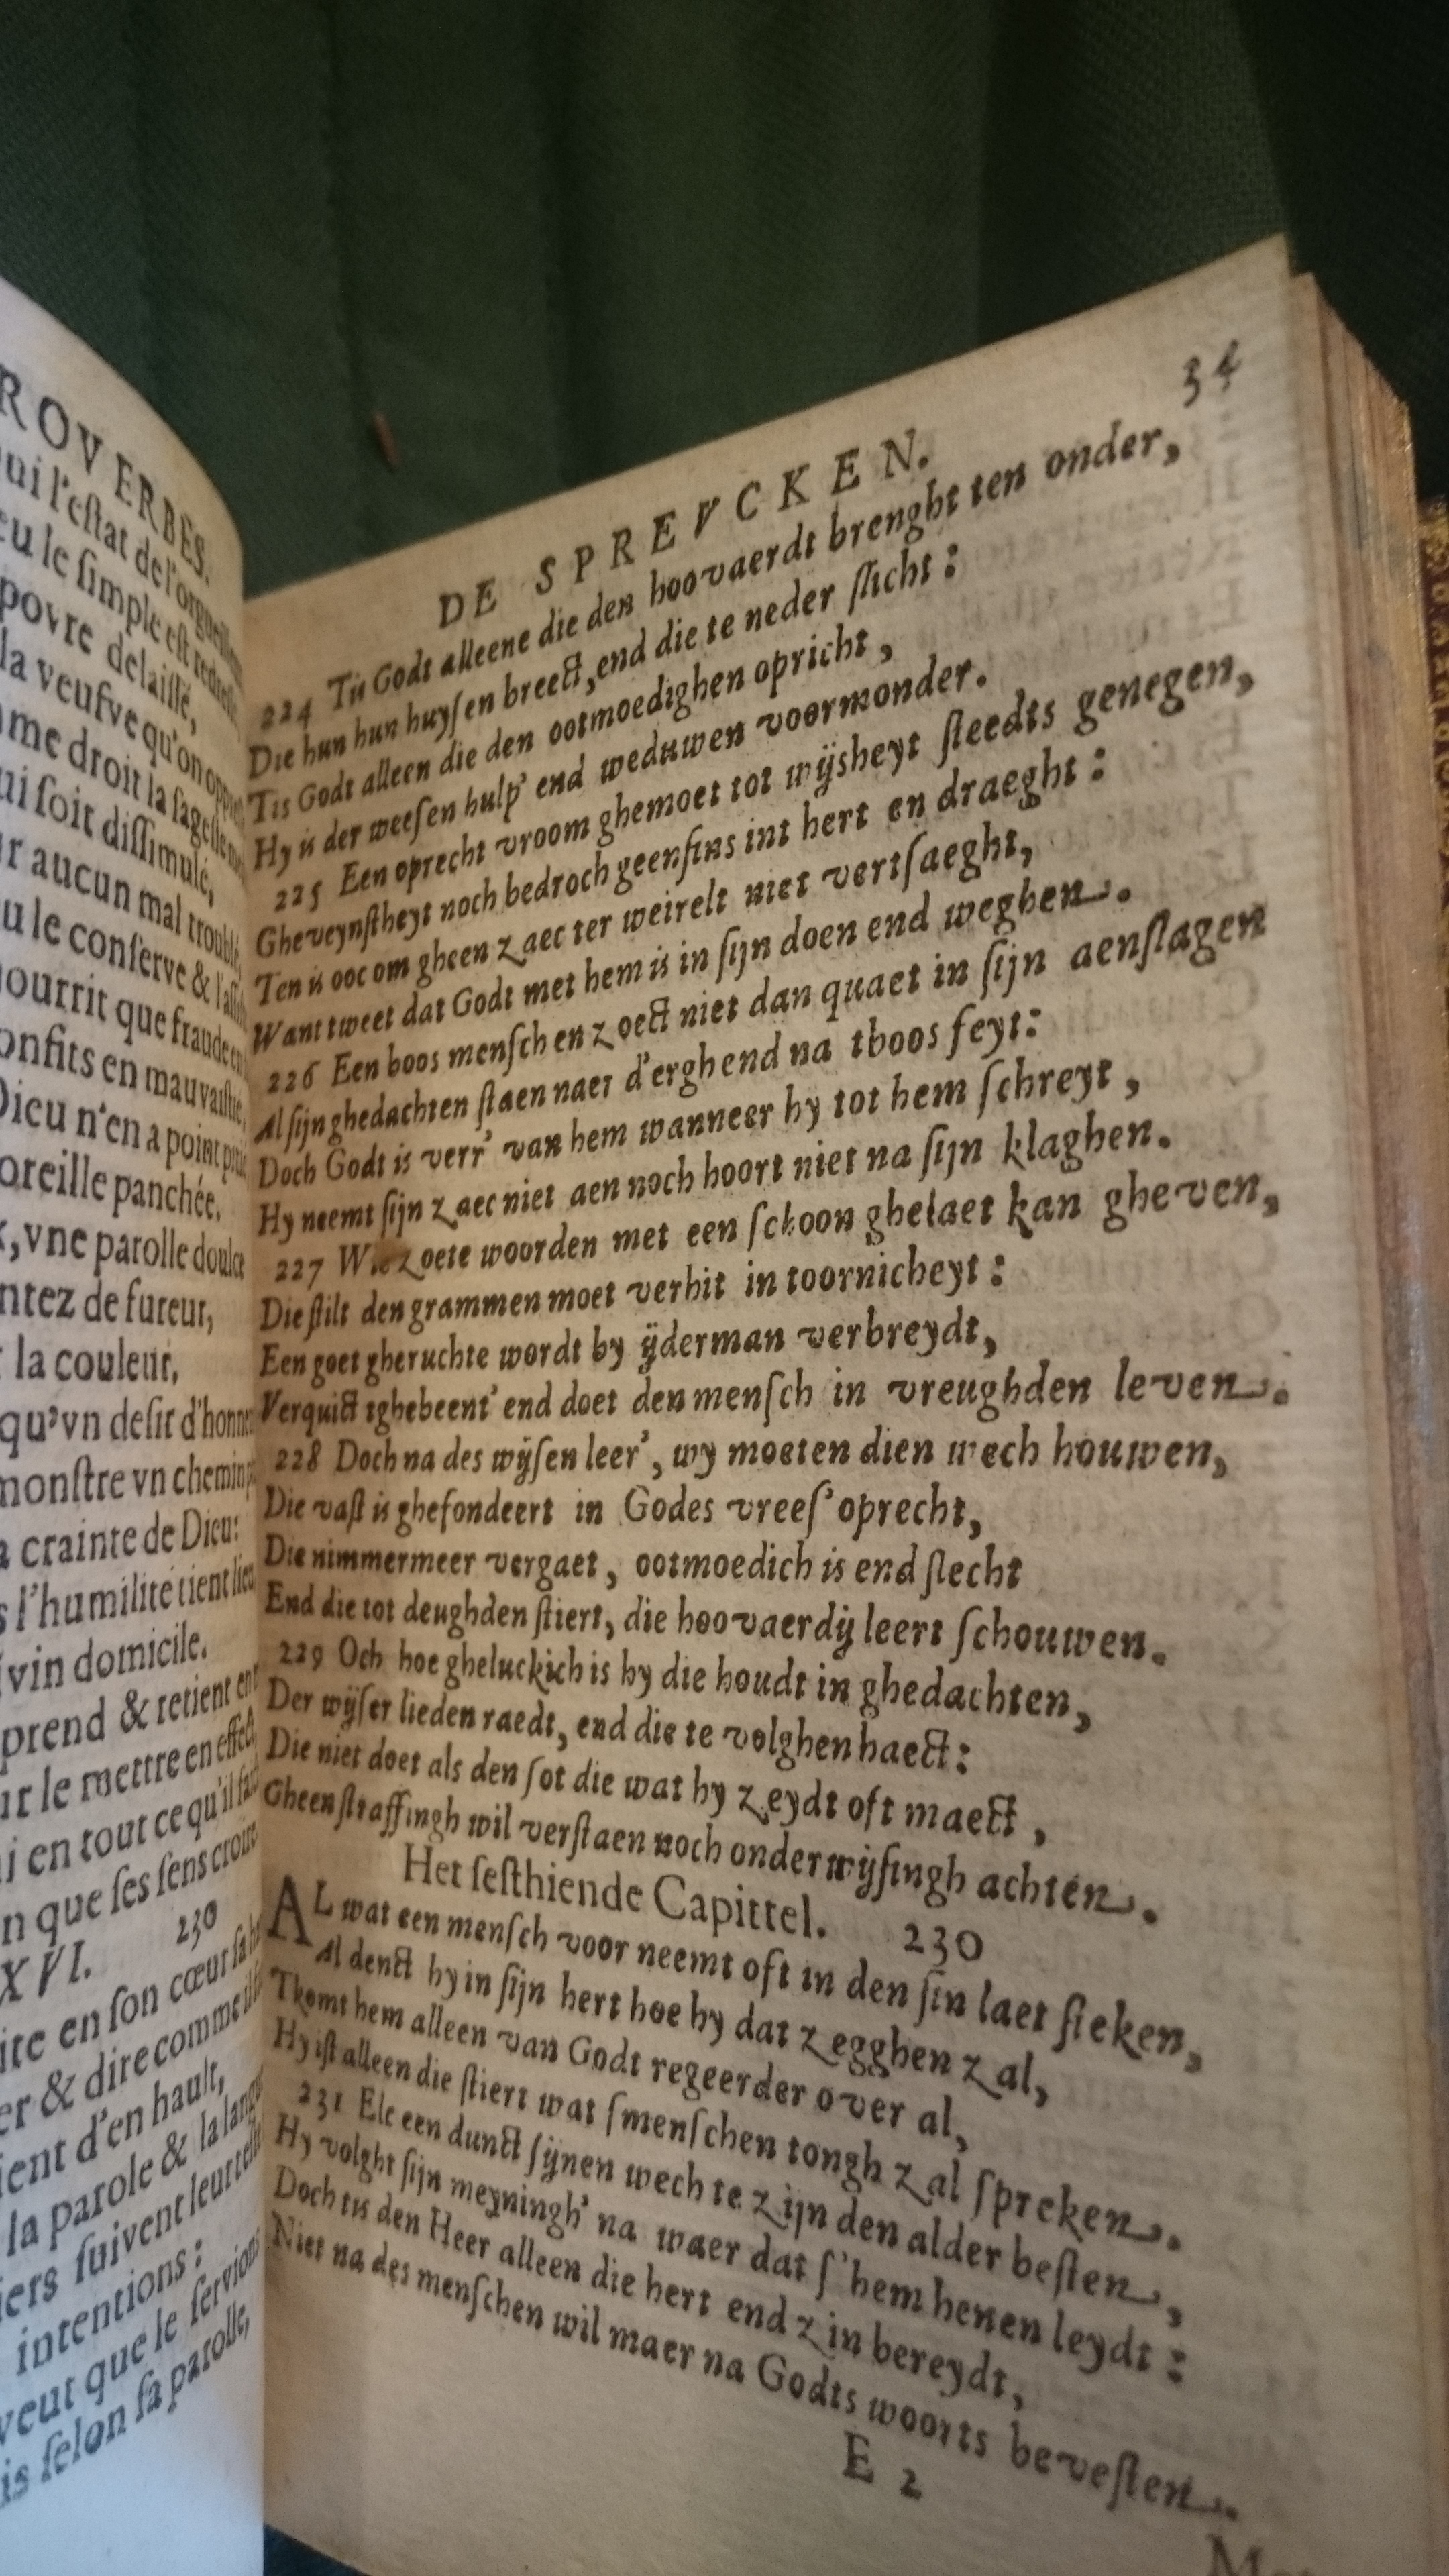 ROVERBES.
ui l'eſtat de l'orgueilleux
eu le ſimple eſt
povre delaiſſé,
la veufve qu'on
me droit la ſageſſe
ui ſoit diſſimulé,
r aucun mal troublé,
u le conſerve &
ourrit que fraude
onfits en
Dieu n'en a point
oreille panchée.
, vne parolle doulce
ntez de fureur,
la couleur,
qu'vn deſir d'honneur
monſtre vn chemin
a crainte de Dieu:
s l'humilité tient lieu
vin domicile.
prend & retient
ur le mettre en effect
i en tout ce qu'il
n que ſes ſens croire
XVI. 230
ite en ſon cœur
er & dire comme
ient d'en hault,
la parole & la langue
iers ſuivent leur
intentions:
veut que le ſervions
is ſelon ſa parolle,
34
DE SPREVCKEN.
224 Tis Godt alleene die den hoovaerdt brenght ten onder,
Die hun hun huyſen breect, end die te neder ſlicht:
Tis Godt alleen die den ootmoedighen opricht,
Hy is der weeſen hulp' end weduwen voormonder.
225 Een oprecht vroom ghemoet tot wijsheyt ſteedts genegen,
Gheveynſtheyt noch bedroch geenſins int hert en draeght:
Ten is ooc om gheen zaec ter weirelt niet vertſaeght,
Want tweet dat Godt met hem is in ſijn doen end weghen.
226 Een boos menſch en zoect niet dan quaet in ſijn aenſlagen
Al ſijn ghedachten ſtaen naer d'ergh end na tboos feyt:
Doch Godt is verr' van hem wanneer hy tot hem ſchreyt,
Hy neemt ſijn zaec niet aen noch hoort niet na ſijn klaghen.
227 Wie zoete woorden met een ſchoon ghelaet kan gheven,
Die ſtilt den grammen moet verhit in toornicheyt:
Een goet gheruchte wordt by ijderman verbreydt,
Verquict tghebeent' end doet den menſch in vreughden leven.
228 Doch na des wijſen leer', wy moeten dien wech houwen,
Die vaſt is ghefondeert in Godes vreeſ' oprecht,
Die nimmermeer vergaet, ootmoedich is end ſlecht
End die tot deughden ſtiert, die hoovaerdij leert ſchouwen.
229 Och hoe gheluckich is hy die houdt in ghedachten,
Der wijſer lieden raedt, end die te volghen haect:
Die niet doet als den ſot die wat hy zeydt oft maect,
Gheen ſtraffingh wil verſtaen noch onderwijſingh achten.
Het ſeſthiende Capittel. 230
AL wat een menſch voor neemt oft in den ſin laet ſteken,
Al denct hy in ſijn hert hoe hy dat zegghen zal,
Tkomt hem alleen van Godt regeerder over al,
Hy iſt alleen die ſtiert wat ſmenſchen tongh zal ſpreken.
231 Elc een dunct ſijnen wech te zijn den alder beſten,
Hy volght ſijn meyningh' na waer dat ſ'hem henen leydt:
Doch tis den Heer alleen die hert end zin bereydt,
Niet na des menſchen wil maer na Godts woorts beveſten.
E 2